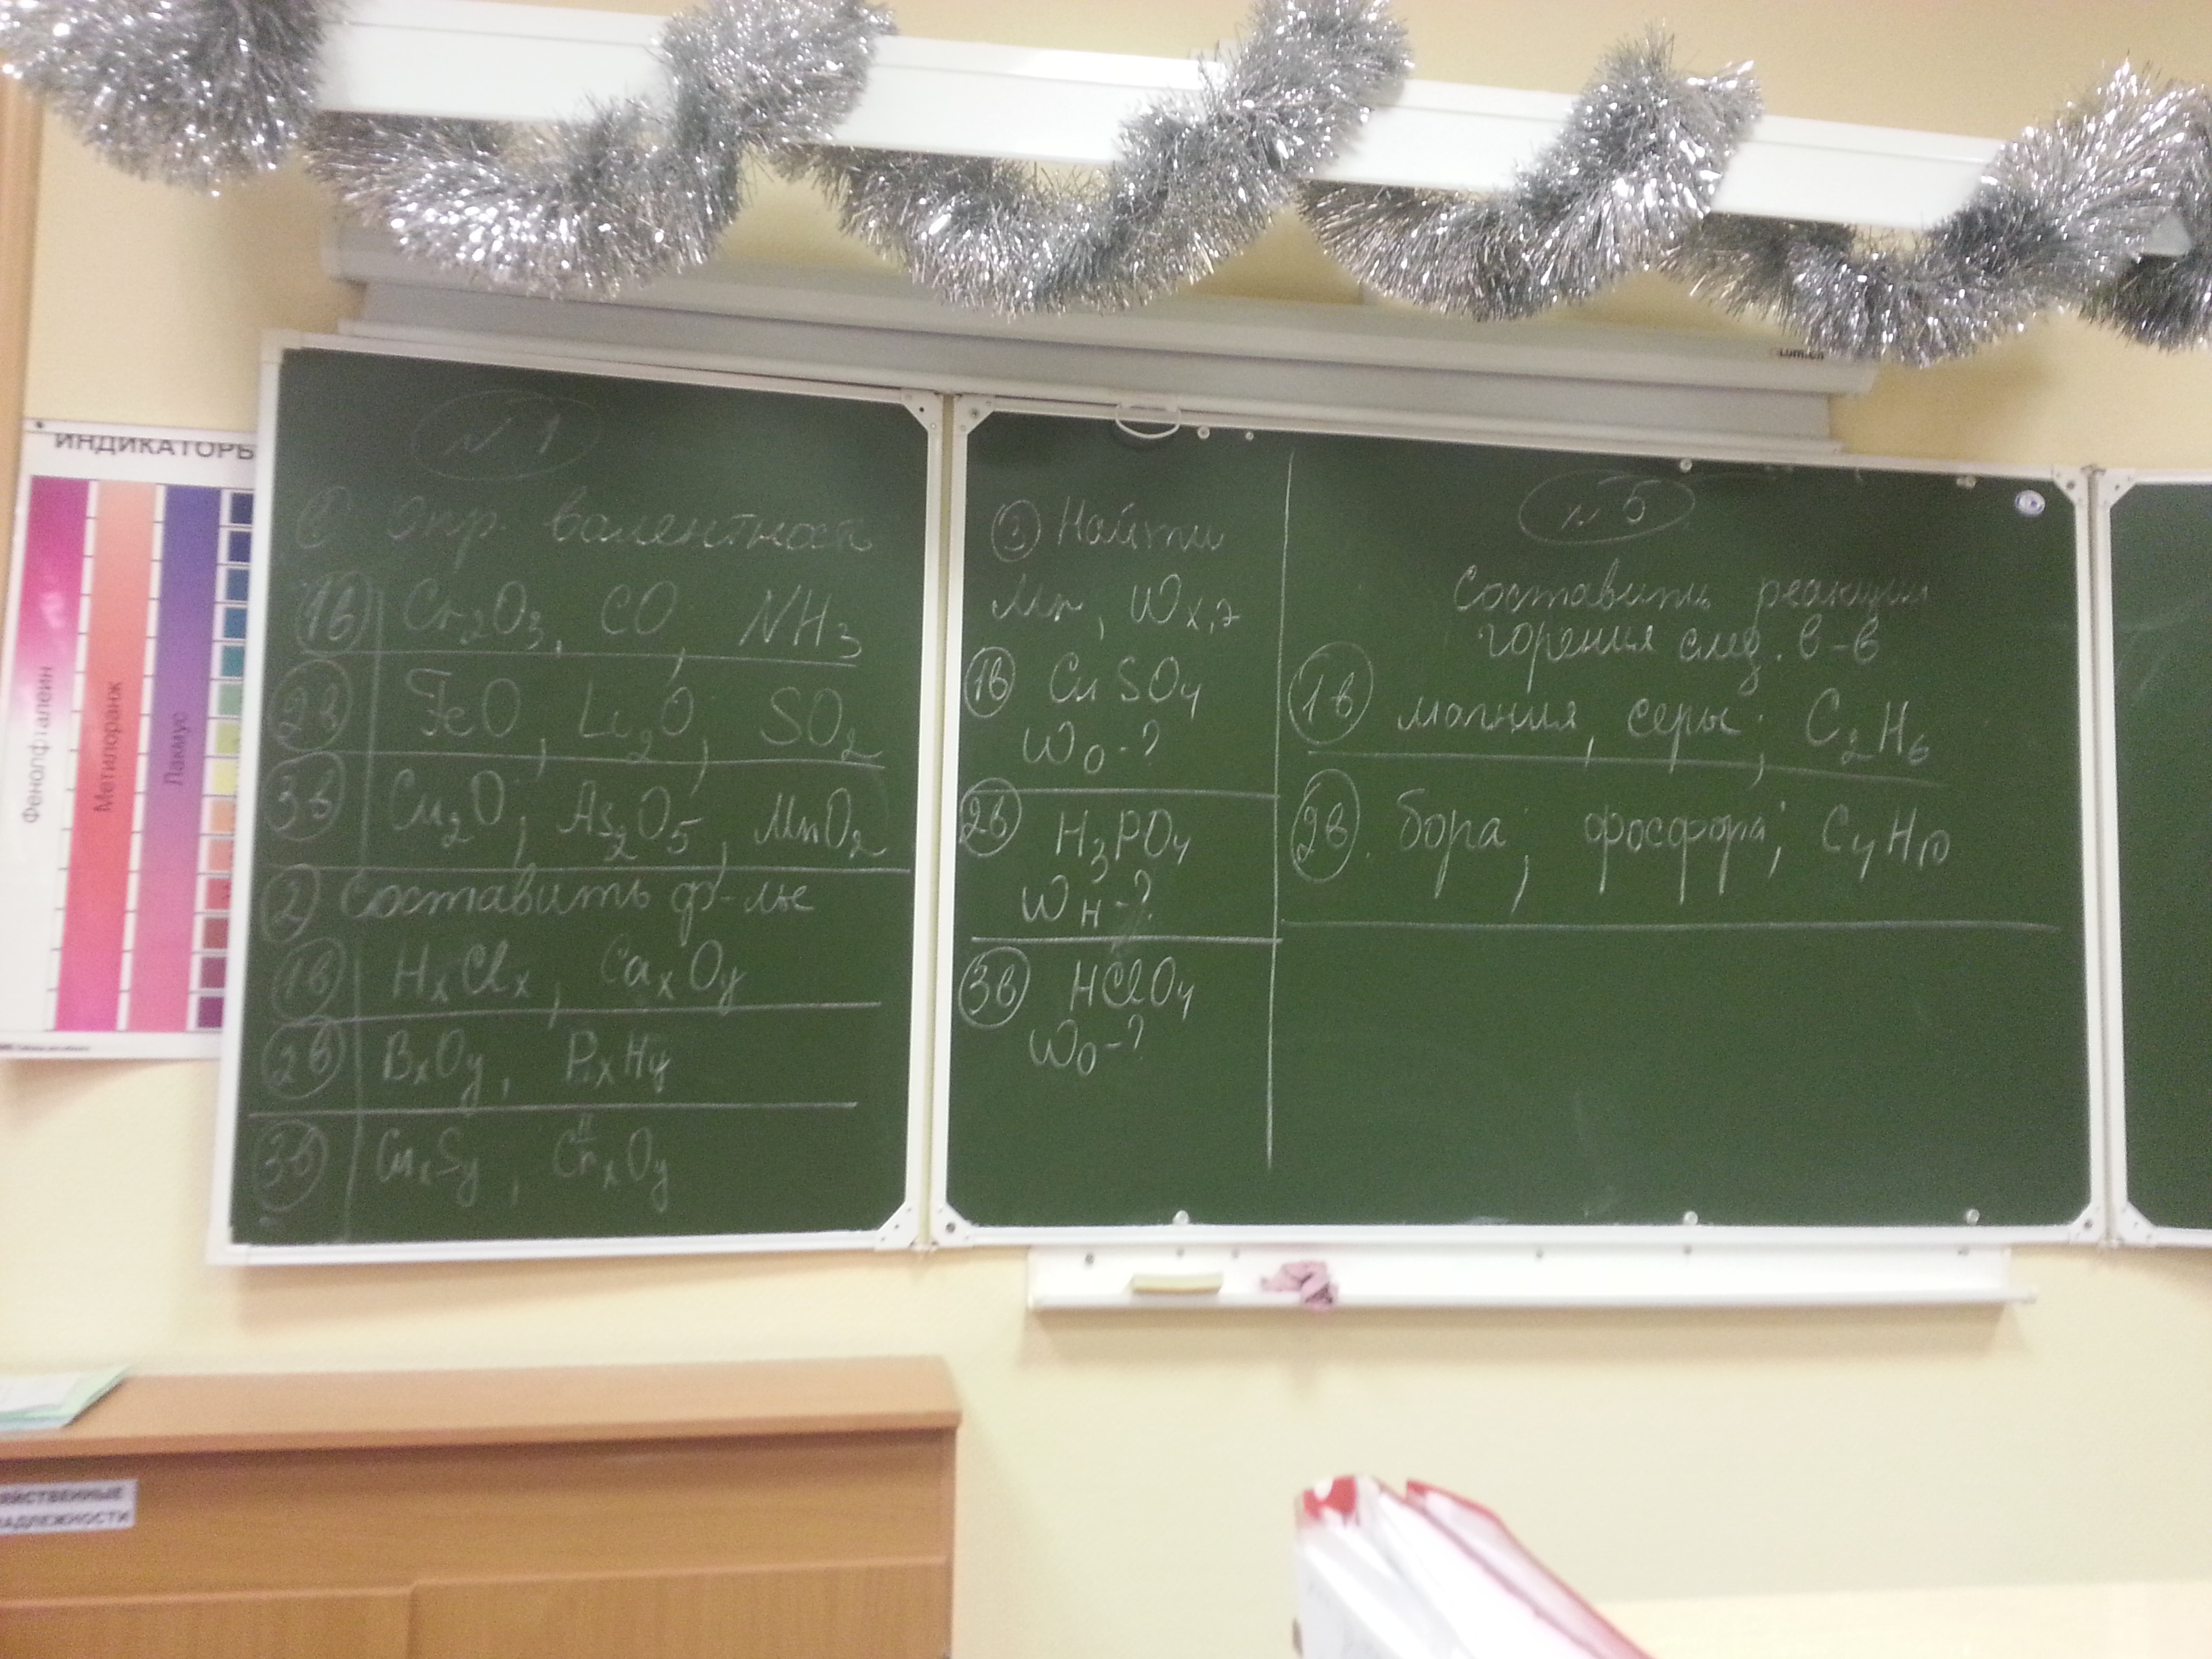 ИНДИКАТОРЫ
Фенолфталеин
Метилоранж
Лакмус
N 1
① Опр. валентность
1в Cr₂O₃, CO, NH₃
2в FeO, Li₂O, SO₂
3в Cu₂O, As₂O₅, MnO₂
② Составить ф-лы
1в HₓClₓ, CaₓOy
2в BₓOy, PₓHy
3в CuₓSy, CrᴵᴵₓOy
③ Найти
Mr, Wх,э
1в CuSO₄
W₀-?
2в H₃PO₄
Wн-?
3в HClO₄
W₀-?
N 5
Составить реакции
горения след. в-в
1в магния, серы; C₂H₆
2в. бора; фосфора; C₄H₁₀
ЯЙСТВЕННЫЕ
АДЛЕЖНОСТИ